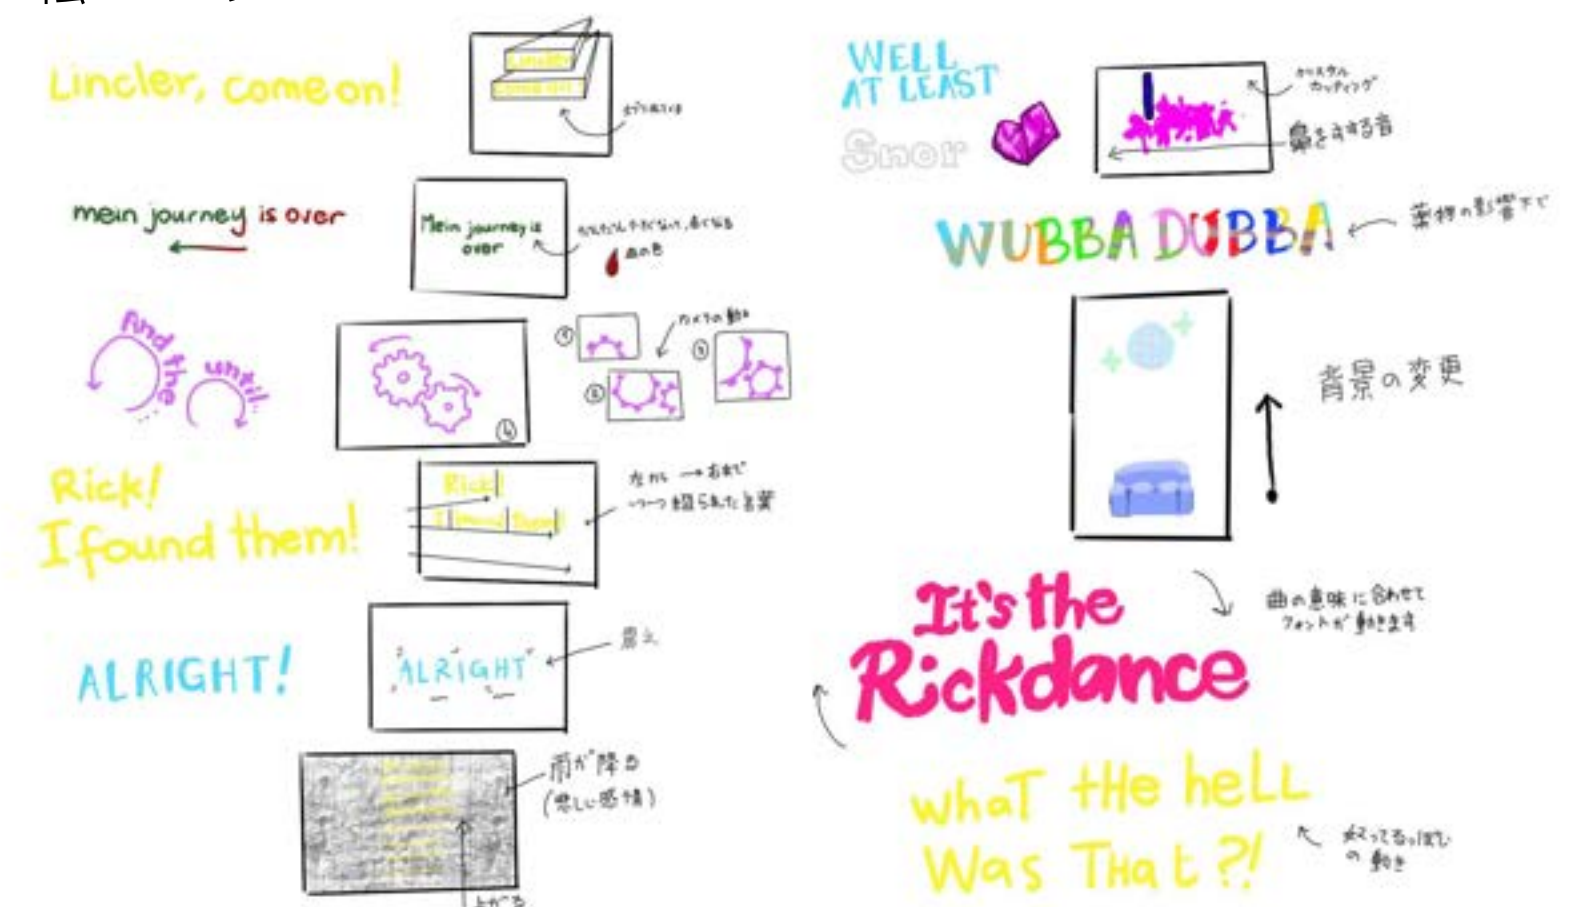 Lincler, come on!
Lincler
come on!
mein journey is over
Mein journey is
over
血の色
And the...
until..
①
②
③
カメラの動き
④
Rick!
I found them!
Rick!
I found them!
左から → 右まで
一つ一つ綴られた言葉
ALRIGHT!
ALRIGHT
震え
雨が降る
(悲しい感情)
上がる
WELL
AT LEAST
Snor
クリスタル
カッティング
鼻をすする音
WUBBA DUBBA
薬物の影響下で
背景の変更
It's the
Rickdance
曲の意味に合わせて
フォントが動きます
WhaT tHe heLL
Was THat?!
怒ってるっぽい
の動き